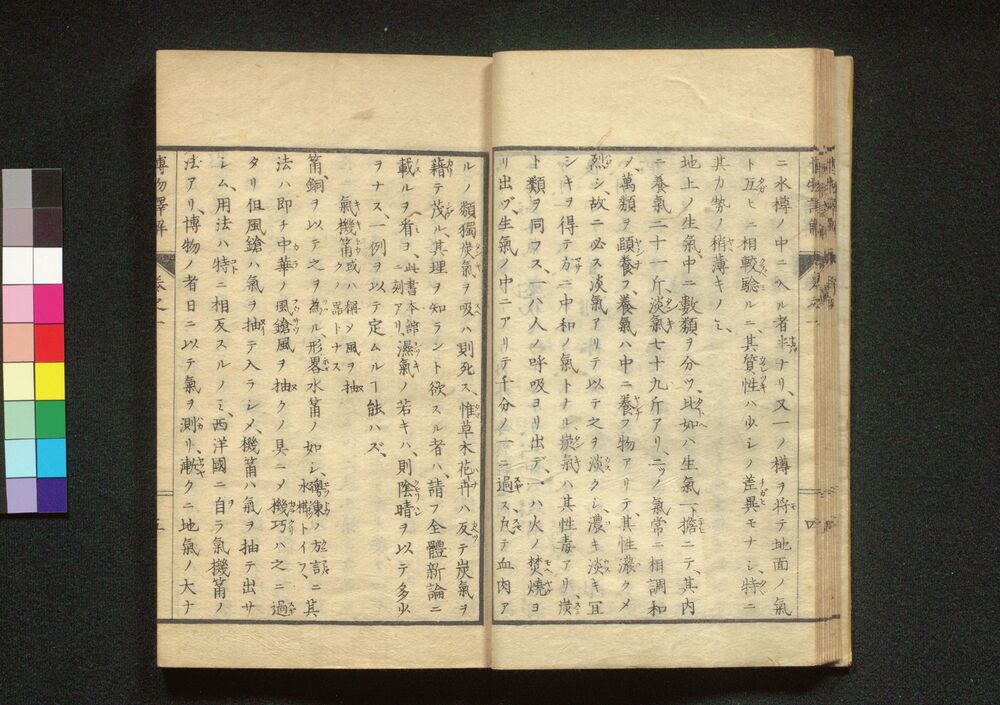 ニ水樽ノ中ニ入ル者非ナリ、又一ノ樽ヲ将テ地面ノ氣
ト互ヒニ相較驗ルニ、其質性ハ少シノ差異モナシ、特ニ
其力勢ノ稍薄キノミ、
地上ノ生氣中ニ數類ヲ分ツ、比如ハ生氣一擔ニテ、其内
ニ養氣二十一斤、淡氣七十九斤アリ、二ツノ氣常ニ相調和
ノ萬類ヲ頤養フ、養氣ハ中ニ養フ物アリテ、其性濃クメ
烈シ、故ニ必ス淡氣アリテ以テ之ヲ淡クシ、濃キ淡キ宜
シキヲ得テ方ニ中和ノ氣トナル、炭氣ハ其性毒アリ、炭
ト類ヲ同フス、一ハ人ノ呼吸ヨリ出デ、一ハ火ノ焚燒ヨ
リ出ヅ、生氣ノ中ニアリテ千分ノ一ニ過ス、凡テ血肉ア
ルノ類獨炭氣ヲ吸ハ則死ス、惟草木花卉ハ反テ炭氣ヲ
藉テ茂ル、其理ヲ知ラント欲スル者ハ、請フ全體新論ニ
載ルヲ看ヨ、此書本館ニ刻アリ、濕氣ノ若キハ、則陰晴ヲ以テ多少
ヲナス、一例ヲ以テ定ムルヿ能ハズ、
氣機筩或ハ稱メ風ヲ抽クノ噐トナス
筩、銅ヲ以テ之ヲ為ル、形畧水筩ノ如シ、粤東ノ方言ニ水櫃トイフ、其
法ハ即チ中華ノ風鎗風ヲ抽クノ具ニメ機巧ハ之ニ過
タリ、但風鎗ハ氣ヲ抽テ入ラシメ、機筩ハ氣ヲ抽テ出サ
シム、用法ハ特ニ相反スルノミ、西洋國ニ自ラ氣機筩ノ
法アリ、博物ノ者日ニ以テ氣ヲ測リ、漸クニ地氣ノ大ナ
博物譯解
卷之一
五
四